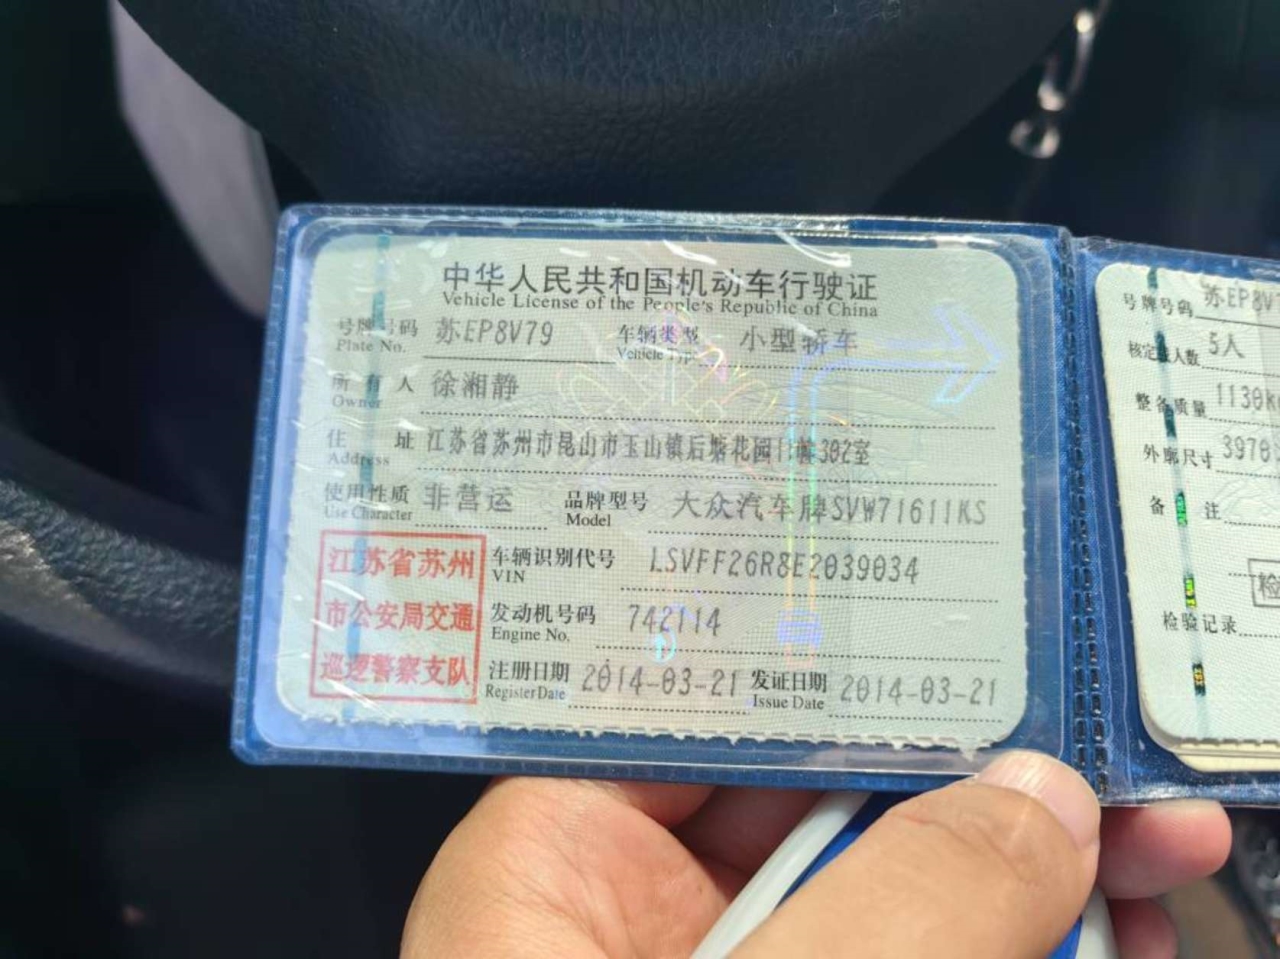 中华人民共和国机动车行驶证
Vehicle License of the People's Republic of China
号牌号码 苏EP8V79 车辆类型 小型轿车
Plate No. Vehicle Type
所有人 徐湘静
Owner
住址 江苏省苏州市昆山市玉山镇后塘花园11幢302室
Address
使用性质 非营运 品牌型号 大众汽车牌SVW71611KS
Use Character Model
江苏省苏州
市公安局交通
巡逻警察支队
车辆识别代号 LSVFF26R8E2039034
VIN
发动机号码 742114
Engine No.
注册日期 2014-03-21 发证日期 2014-03-21
Register Date Issue Date
号牌号码 苏EP8V
核定载人数 5人
整备质量 1130k
外廓尺寸 3970
备注
检
检验记录